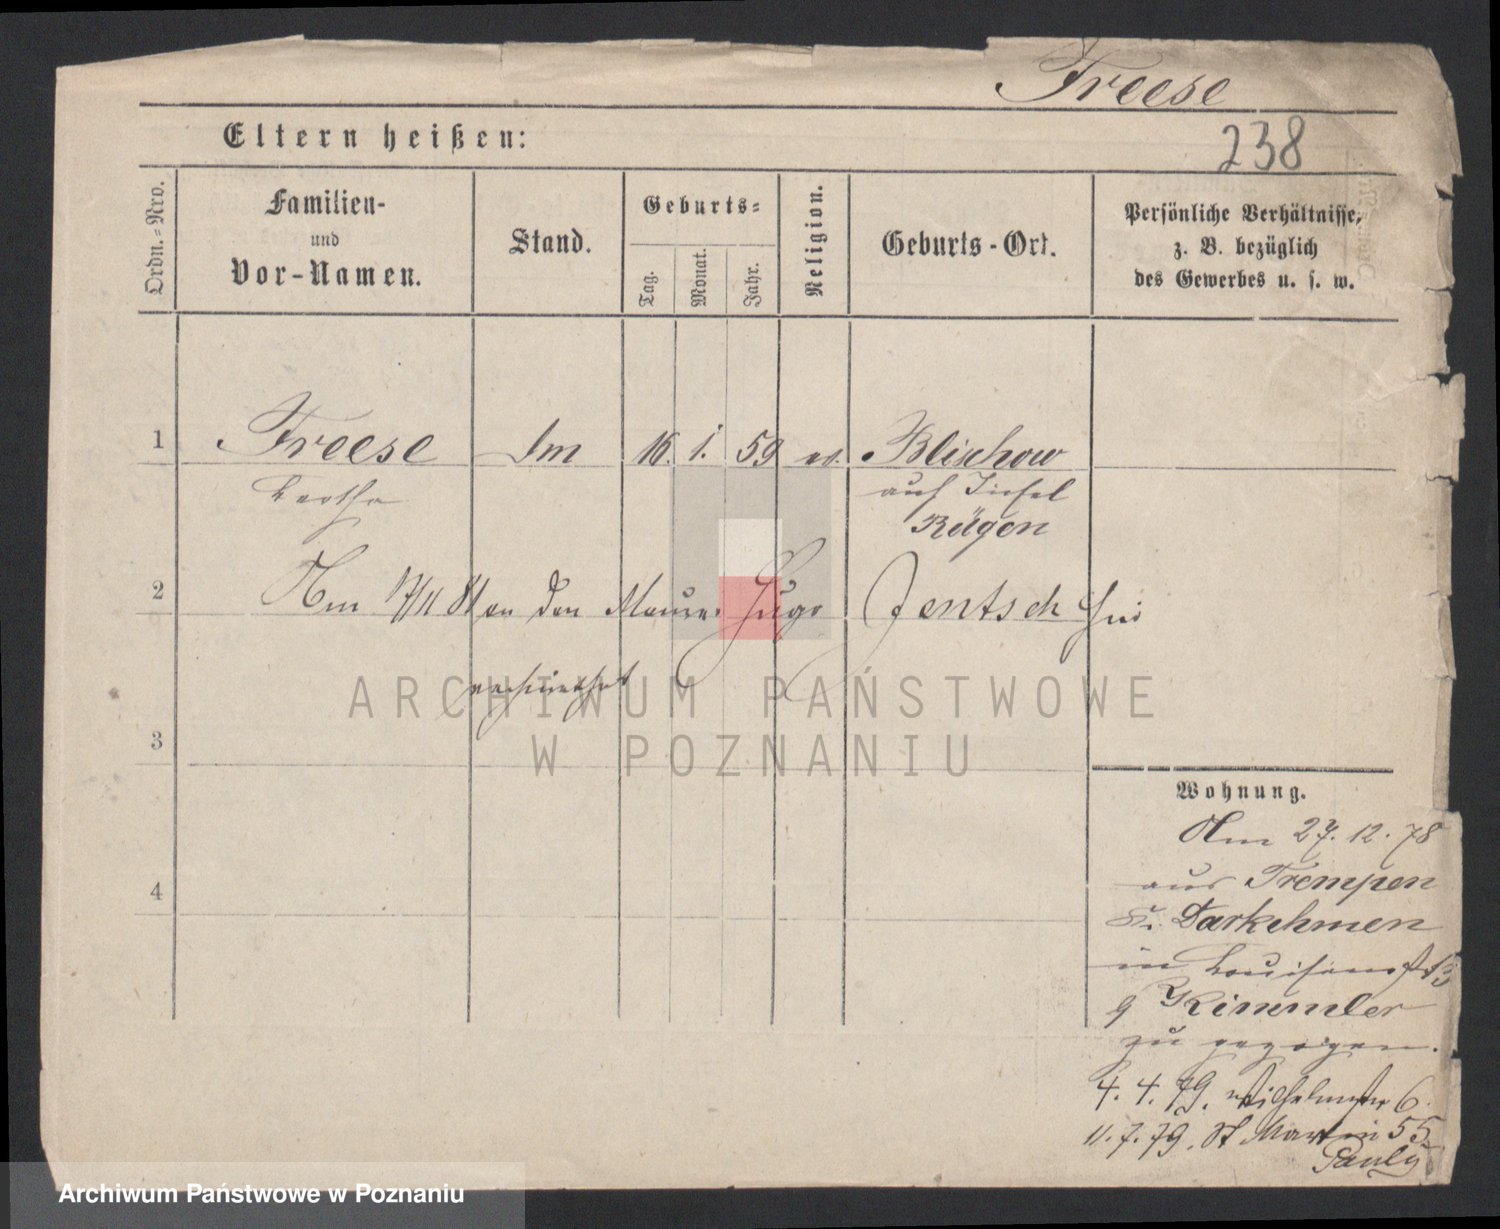 Freese
238
Eltern heißen:
Ordn.=Nro.
Familien-
und
Vor-Namen.
Stand.
Geburts=
Tag.
Monat.
Jahr.
Religion.
Geburts-Ort.
Persönliche Verhältnisse,
z. B. bezüglich
des Gewerbes u. s. w.
1 Freese 16. 1. 59 ev. Blischow
Bertha auf Insel
Rügen
2 Am 17/11 81 an den Maurer Hugo Jentsch hier
verheirathet
3
4
Wohnung.
Am 27. 12. 78
aus Trempen
Kr. Darkehmen
in Louisenstr 13
Kimmler
zu gezogen.
4. 4. 79. Wilhelmstr 6.
11. 7. 79. St Martin 55
Pauly
ARCHIWUM PAŃSTWOWE
W POZNANIU
Archiwum Państwowe w Poznaniu